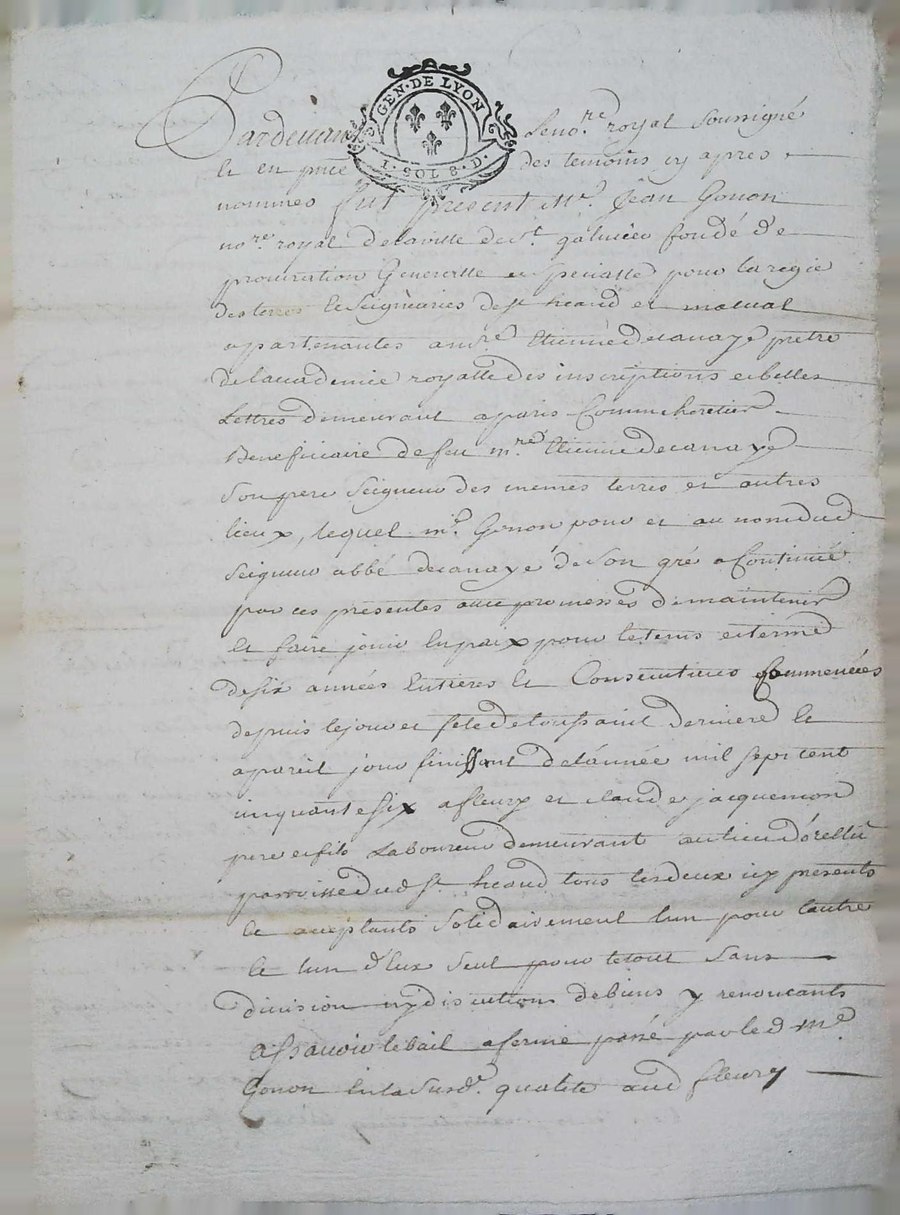 GEN · DE LYON
1 · SOL 8 · D ·
Pardevant Le no.re royal soussigné
et en pnce des temoins cy apres
nommes fut present Me. Jean Gonon
no.re royal delaville de St. galmier fondé de
procuration Generalle et specialle pour laregie
des terres et seigneuries de st heand et malual
apartenantes a Etienne decanaye pretre
delaccademie royalle des inscriptions et belles
Lettres demeurant aparis Comme heretier
Beneficiaire de feu m.re Etienne decanaye
son pere seigneur des memes terres et autres
lieux, lequel me. Gonon pour et au nom dud
seigneur abbé decanaye de son gré a Continué
par ces presentes avec promesses demaintenir
et faire jouir en paix pour le tems et terme
desix années Entieres et Consecutives Commencées
depuis le jour et fete de toussaint derniere et
apareil jour finissant delannée mil sept cent
cinquante six a fleury et claude jacquemon
pere et fils Laboureur demeurant au lieu
paroisse dud st. heand tous les deux icy presents
et acceptants solidairement lun pour lautre
et lun d'Eux seul pour le tout sans
division ny discution de biens y renoncants
assavoir le bail a ferme passé par led me
Gonon En la susd. qualite aud fleury